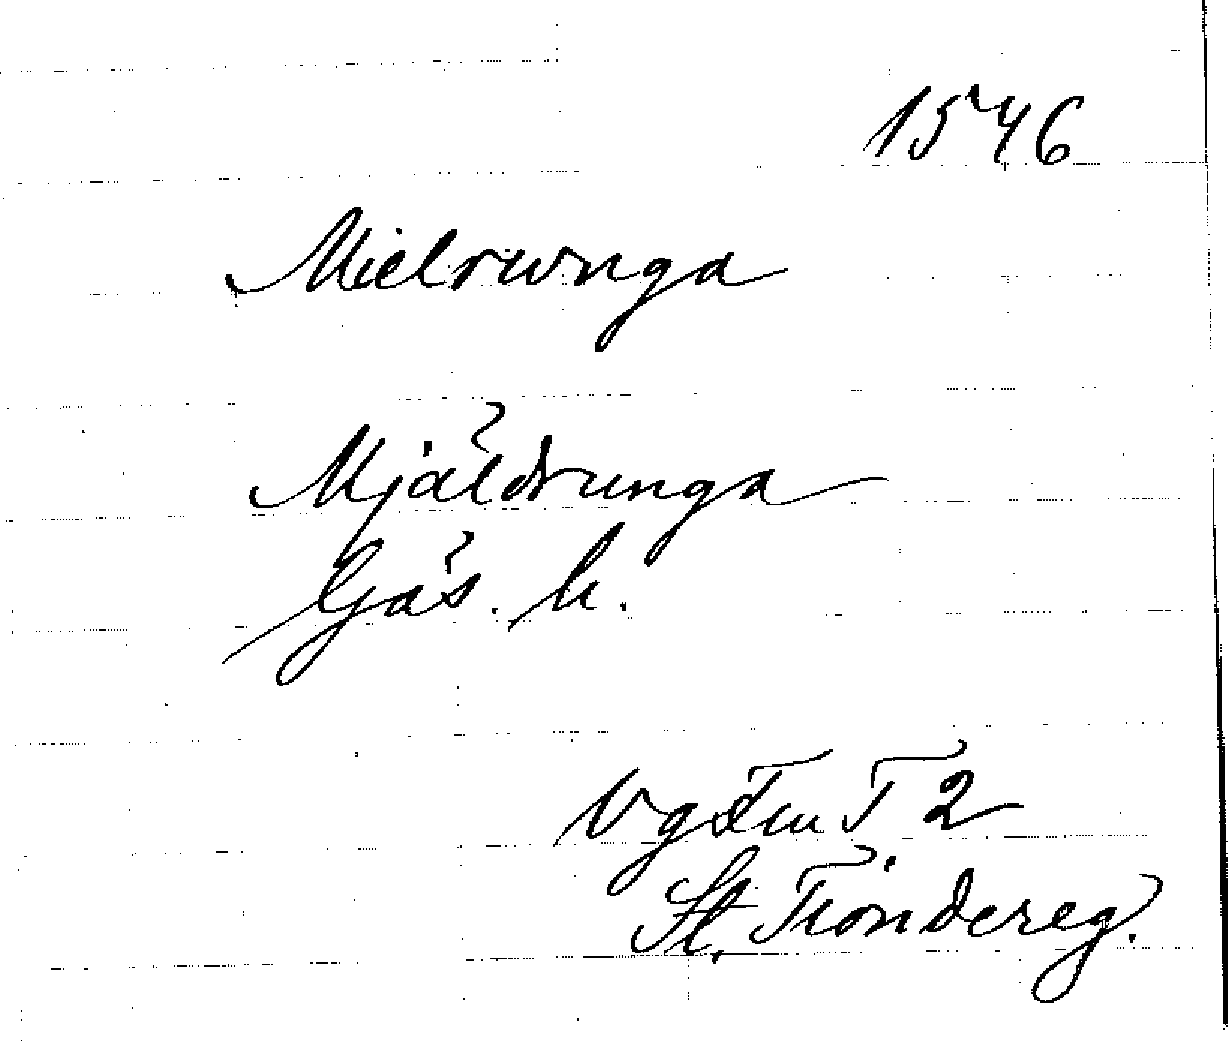 1546
Mielrwnga
Mjäldrunga
Gäs. h.
Vg Fm T 2
St. Tiondereg.